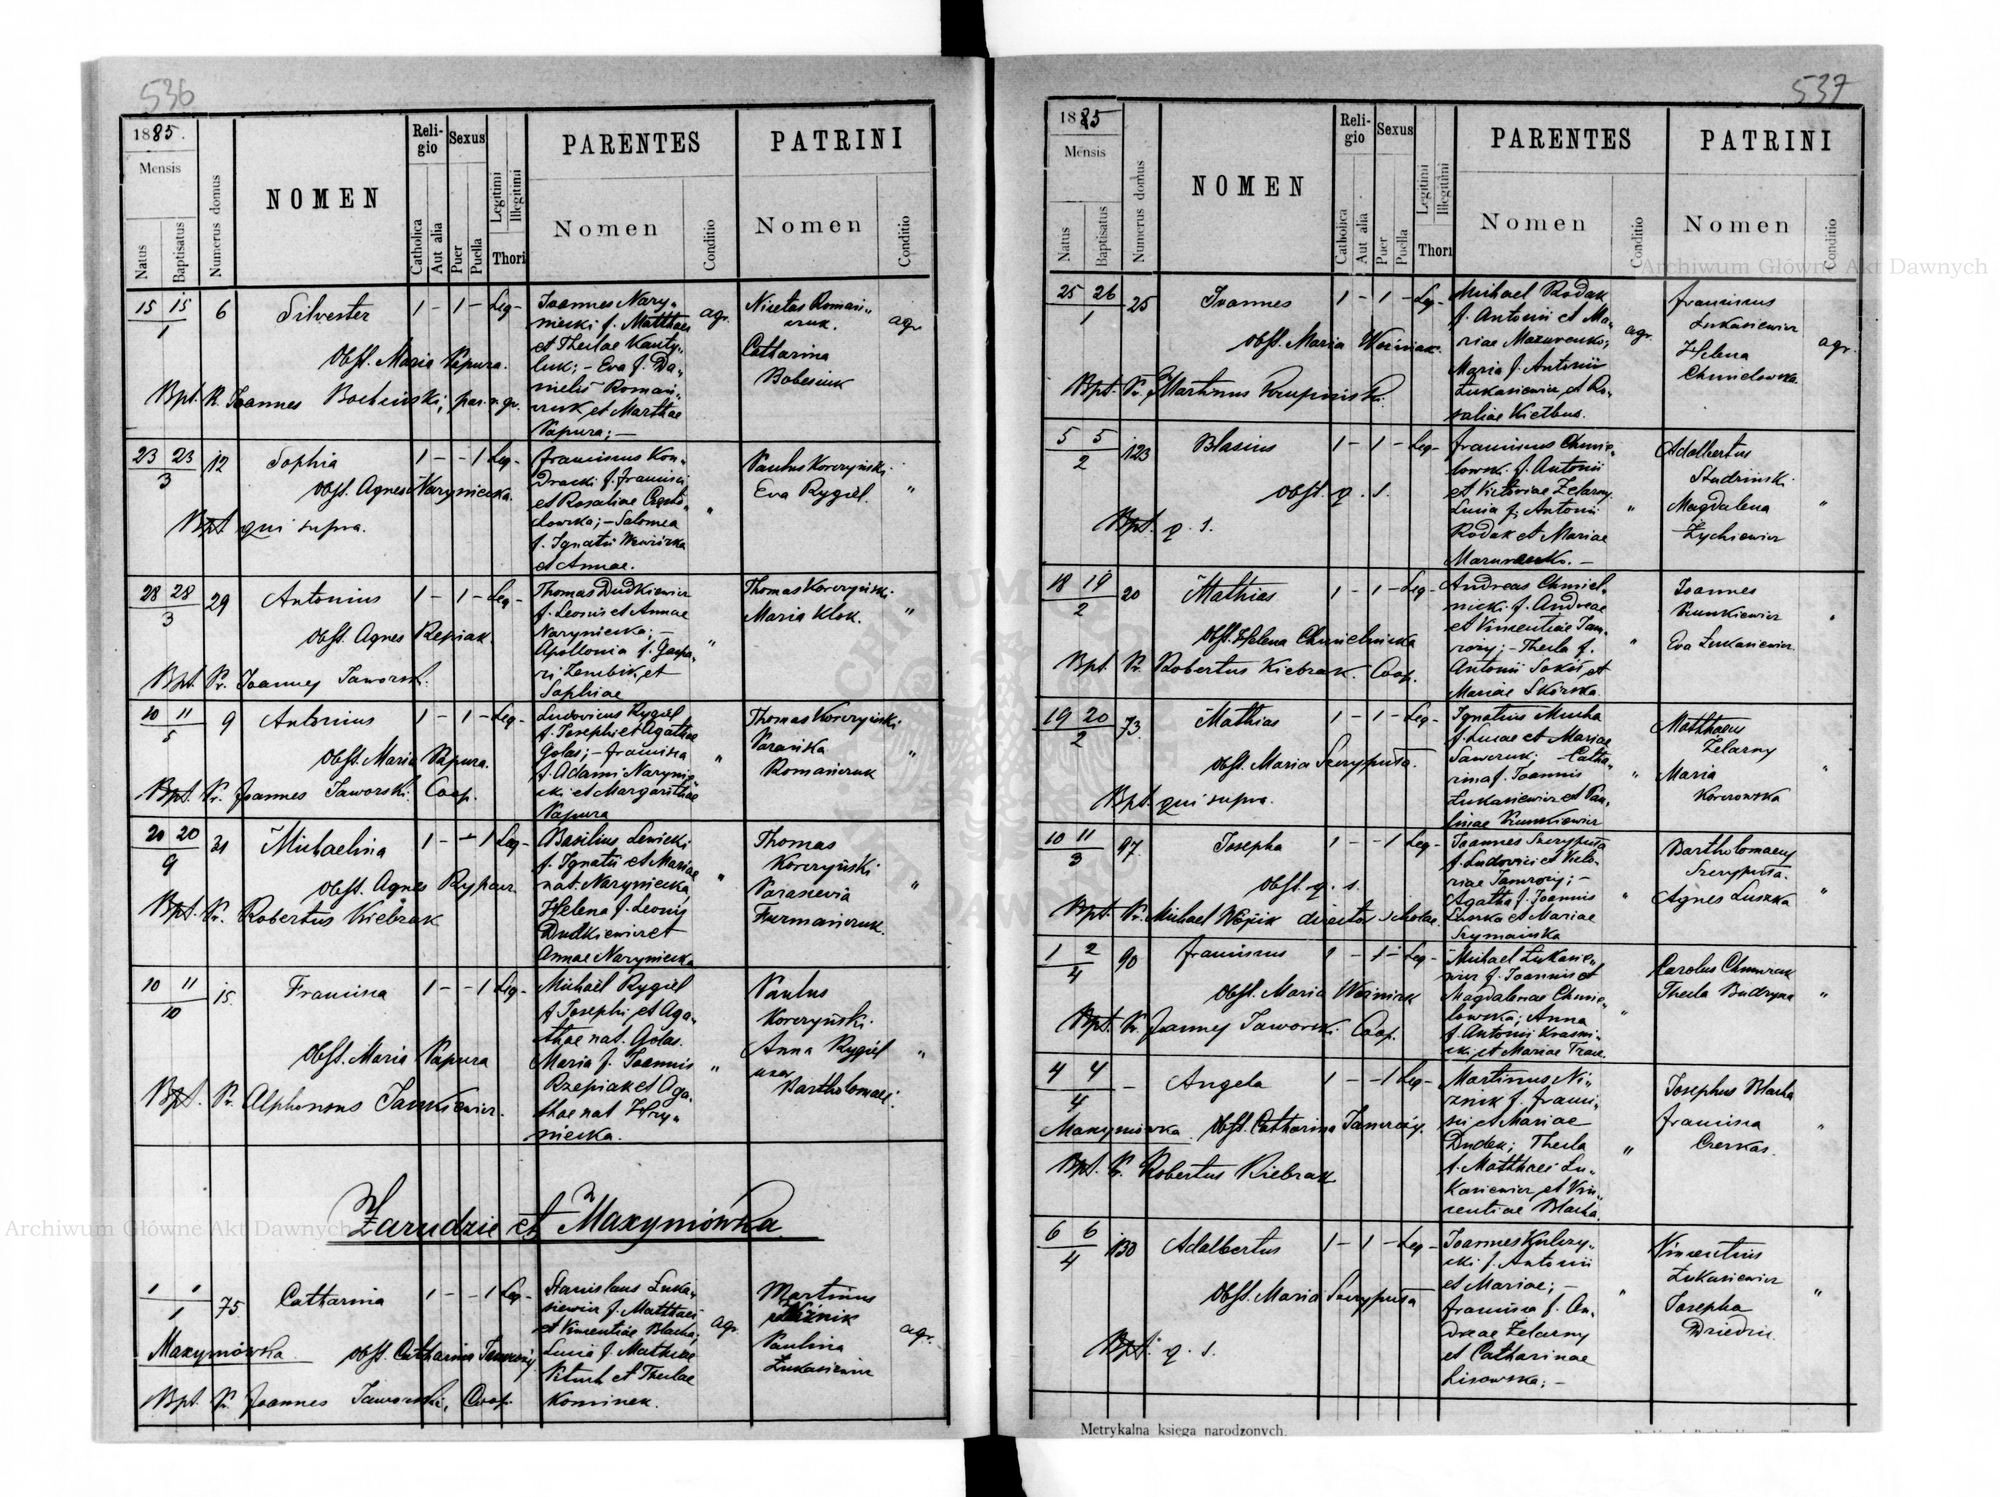 536
1885.
Mensis
Natus
Baptisatus
Numerus domus
NOMEN
Religio
Catholica
Aut alia
Sexus
Puer
Puella
Legitimi
Illegitimi
Thori
PARENTES
Nomen
Conditio
PATRINI
Nomen
Conditio
15 15 6 Silvester 1 - 1 - Leg-
1
Obst. Maria Papura.
Bpt. R. Joannes Bocheński, par. r. gr.
Joannes Nary„
niecki f. Matthaei
et Theclae Kanty„
luk; - Eva f. Da„
nielis Romań„
czuk et Marthae
Papura; —
agr.
Nicetas Romań„
czuk.
Catharina
Babesiuk
agr.
23 23 12 Sophia 1 - - 1 Leg-
3
Obst. Agnes Naryniecka.
Bpt. qui supra.
Franciscus Kon„
dracki f. Francisci
et Rosaliae Często„
chowska; - Salomea
f. Ignatii Wiewiórka
et Annae.
"
Paulus Korczyński.
Eva Rygiel.
"
28 28 29 Antonius 1 - 1 - Leg-
3
Obst. Agnes Repiak.
Bpt. Pr. Joannes Jaworski.
Thomas Dudkiewicz
f. Leonis et Annae
Naryniecka; —
Apollonia f. Gaspa„
ri Zembik, et
Sophiae
"
Thomas Korczyński.
Maria Klok.
"
10 11 9 Antonius 1 - 1 - Leg-
5
Obst. Maria Papura.
Bpt. Pr. Joannes Jaworski. Coop.
Ludovicus Rygiel
f. Josephi et Agathae
Golas; - Francisca
f. Adami Narynie„
cki et Margarithae
Papura
"
Thomas Korczyński
Parańka
Romańczuk
"
20 20 31 Michaelina 1 - - 1 Leg-
9
Obst. Agnes Rypcar.
Bpt. Pr. Robertus Kiebzak
Basilius Lewicki
f. Ignatii et Mariae
nat. Naryniecka,
Helena f. Leonis
Dudkiewicz et
Annae Naryniecka
"
Thomas
Korczyński.
Parascevia
Furmańczuk.
"
10 11 15. Francisca 1 - - 1 Leg-
10
Obst. Maria Papura
Bpt. Pr. Alphonsus Jankiewicz.
Michaël Rygiel
f. Josephi, et Aga„
thae nat. Golas.
Maria f. Joannis
Rzepiak et Aga„
thae nat Hry„
niecka.
"
Paulus
Korczyński.
Anna Rygiel
uxor
Bartholomaei.
"
Zarudzie et Maxymówka.
1 1 75. Catharina 1 - - 1 Leg-
1
Maxymówka. Obst. Catharina Jamroży.
Bpt. Pr. Joannes Jaworski, Coop.
Stanislaus Łuka„
siewicz f. Matthaei
et Vincentiae Blacha,
Lucia f. Mathiae
et Theclae
Kominek.
agr.
Martinus
Niźnik
Paulina
Łukasiewicz
agr.
537
1885
Mensis
Natus
Baptisatus
Numerus domus
NOMEN
Religio
Catholica
Aut alia
Sexus
Puer
Puella
Legitimi
Illegitimi
Thori
PARENTES
Nomen
Conditio
PATRINI
Nomen
Conditio
25 26 25 Joannes 1 - 1 - Leg-
1
Obst. Maria Woźniak.
Bpt. Pr. Martinus Krupiński.
Michael Rodak
f. Antonii et Ma„
riae Mazurenko;
Maria f. Antonii
Łukasiewicz et Ro„
saliae Kiełbus.
agr.
Franciscus
Łukasiewicz
Helena
Chmielowska.
agr.
5 5 123 Blasius 1 - 1 - Leg-
2
Obst. q. s.
Bpt. q. s.
Franciscus Chmie„
lowski f. Antonii
et Victoriae Żelazny.
Lucia f. Antonii
Rodak et Mariae
Mazurenko. —
"
Adalbertus
Studziński.
Magdalena
Zychiewicz
"
18 19 20 Mathias 1 - 1 - Leg-
2
Obst. Helena Chmielnicka
Bpt. Pr. Robertus Kiebzak. Coop.
Andreas Chmiel„
nicki f. Andreae
et Vincentiae Jam„
roży; - Thecla f.
Antonii Sokół et
Mariae Skórska.
"
Joannes
Prunkiewicz
Eva Łukasiewicz.
"
19 20 73. Mathias 1 - 1 - Leg-
2
Obst. Maria Szczyputa.
Bpt. qui supra.
Ignatius Mucha
f. Lucae et Mariae
Sawczuk; Catha„
rina f. Joannis
Łukasiewicz et Pau„
linae Prunkiewicz
"
Matthaeus
Żelazny
Maria
Korczowska
"
10 11 97. Josepha 1 - - 1 Leg-
3
Obst. q. s.
Bpt. Pr. Michael Wójcik director scholae
Joannes Szczyputa
f. Ludovici et Victo„
riae Jamroży; —
Agatha f. Joannis
Łuszka et Mariae
Szymańska
"
Bartholomaeus
Szczyputa.
Agnes Łuszka
"
1 2 90 Franciscus 1 - 1 - Leg-
4
Obst. Maria Woźniak
Bpt. Pr. Joannes Jaworski. Coop.
Michael Łukasie„
wicz f. Joannis et
Magdalenae Chmie„
lowska; Anna
f. Antonii Krasni„
cki, et Mariae Tracz.
"
Carolus Chmurak
Thecla Budzyna
"
4 4 — Angela 1 - - 1 Leg-
4
Maxymówka. Obst. Catharina Jamroży.
Bpt. Pr. Robertus Kiebzak
Martinus Ni„
znik f. Franci„
sci et Mariae
Dudek; Thecla
f. Matthaei Łu„
kasiewicz et Vin„
centiae Blacha.
"
Josephus Blacha
Francisca
Czerkas.
"
6 6 130 Adalbertus 1 - 1 - Leg-
4
Obst. Maria Szczyputa
Bpt. q. s.
Joannes Kulczy„
cki f. Antonii
et Mariae; —
Francisca f. An„
dreae Żelazny
et Catharinae
Lisowska; —
"
Vincentius
Łukasiewicz
Josepha
Dziedzic.
"
Metrykalna księga narodzonych.
Archiwum Główne Akt Dawnych
Archiwum Główne Akt Dawnych